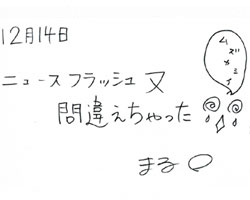 12月14日
ニュースフラッシュ又
間違えちゃった
まる〇